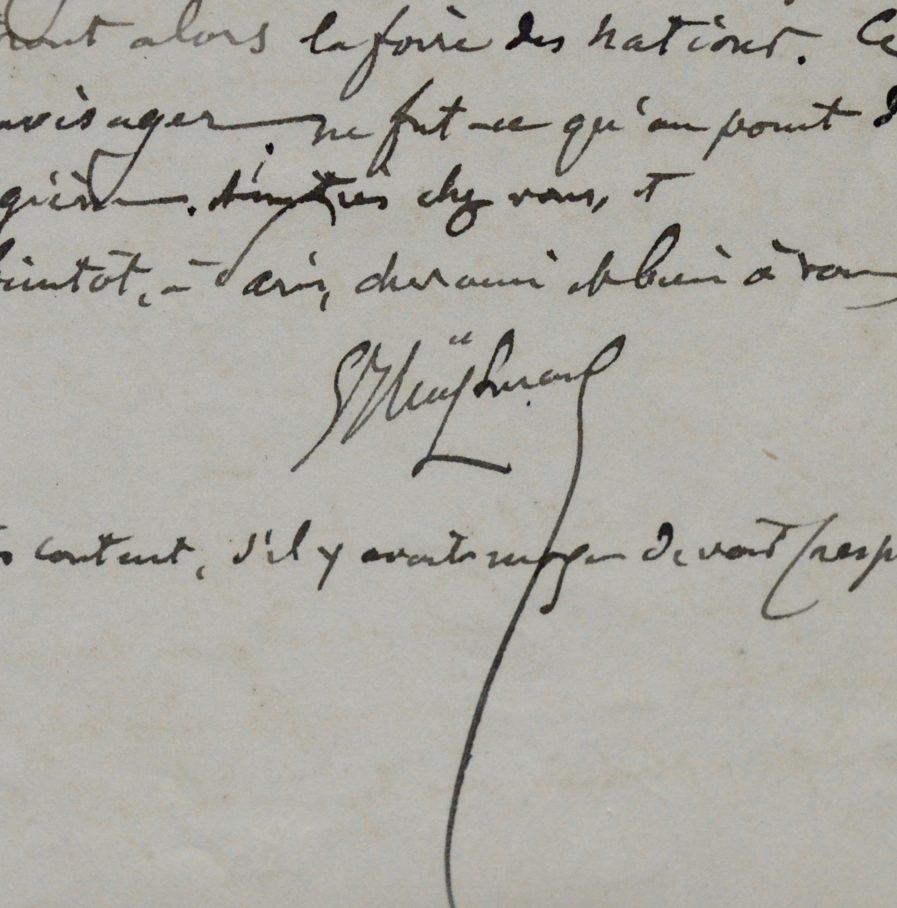 alors la foire des nations. Ce
nvisager ne fut-ce qu'au point d
chez vous, et
bientôt, à Paris, cher ami et bien à vous
GJHuÿsmans
contents, s'il y avait moyen de voir (resp